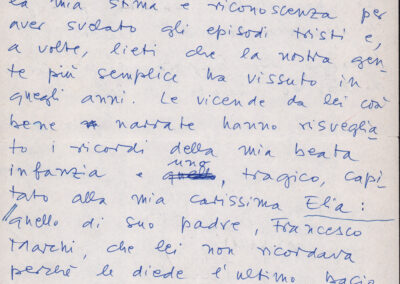 la mia stima e riconoscenza per
aver svelato gli episodi tristi e,
a volte, lieti che la nostra gen
te più semplice ha vissuto in
quegli anni. Le vicende da lei così
bene narrate hanno risveglia
to i ricordi della mia beata
infanzia e uno, tragico, capi
tato alla mia carissima Elia:
quello di suo padre, Francesco
Marchi, che lei non ricordava
perchè le diede l'ultimo bacio